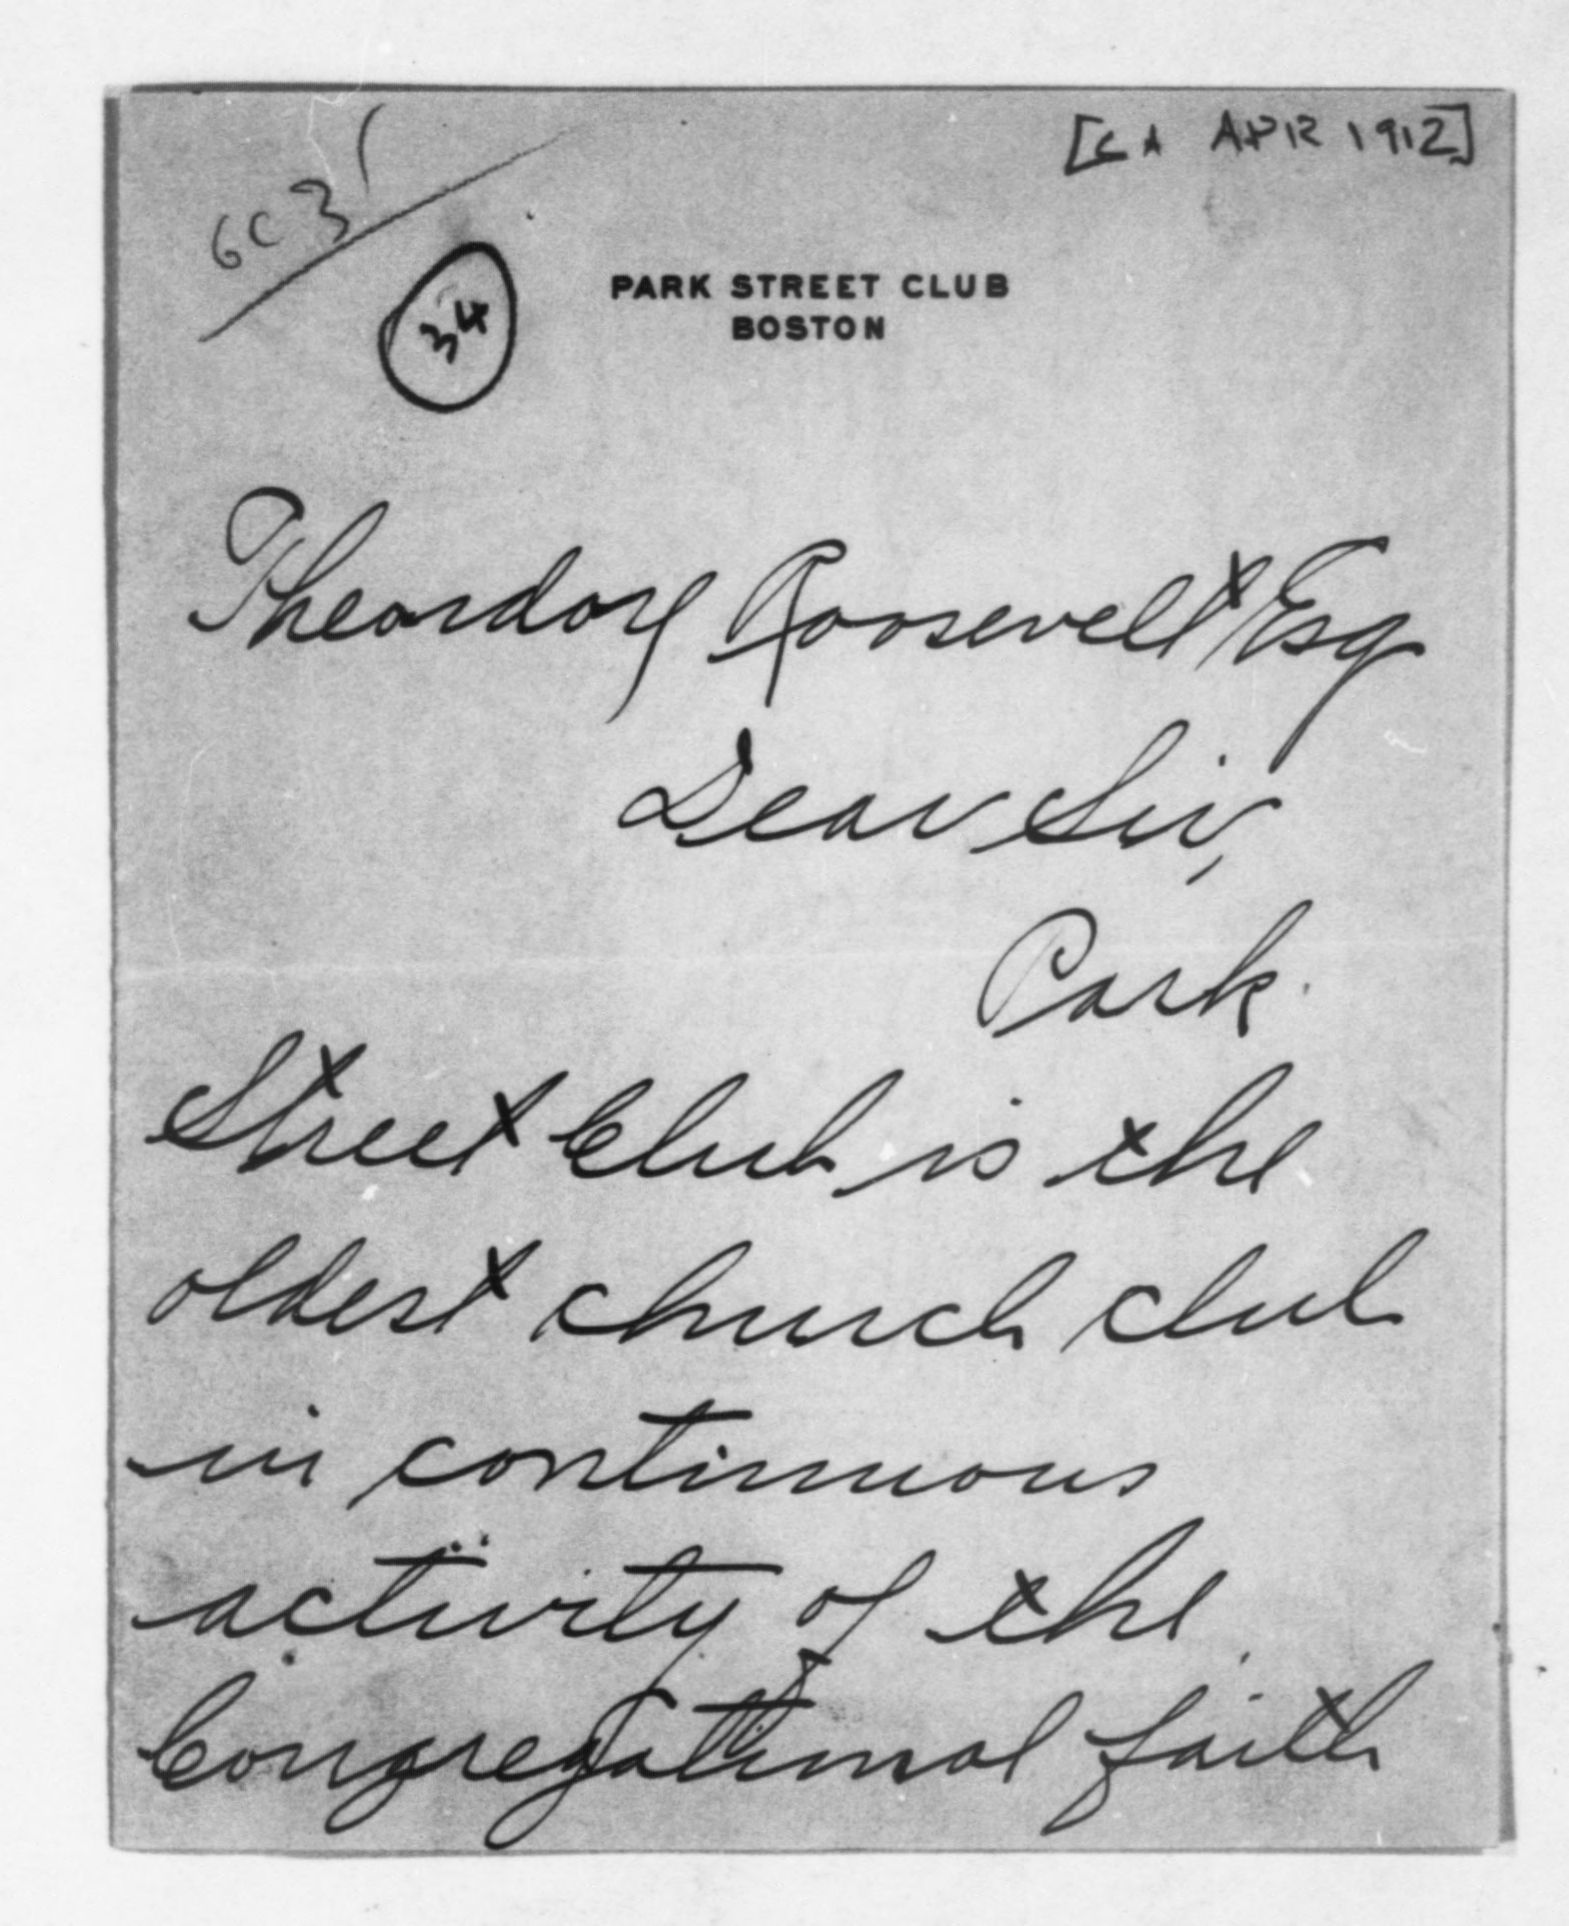 [CA APR 1912]
34
PARK STREET CLUB
BOSTON
Theordore Roosevelt Esq
Dear Sir,
Park
Street Club is the
oldest church club
in continuous
activity of the
Congregational faith